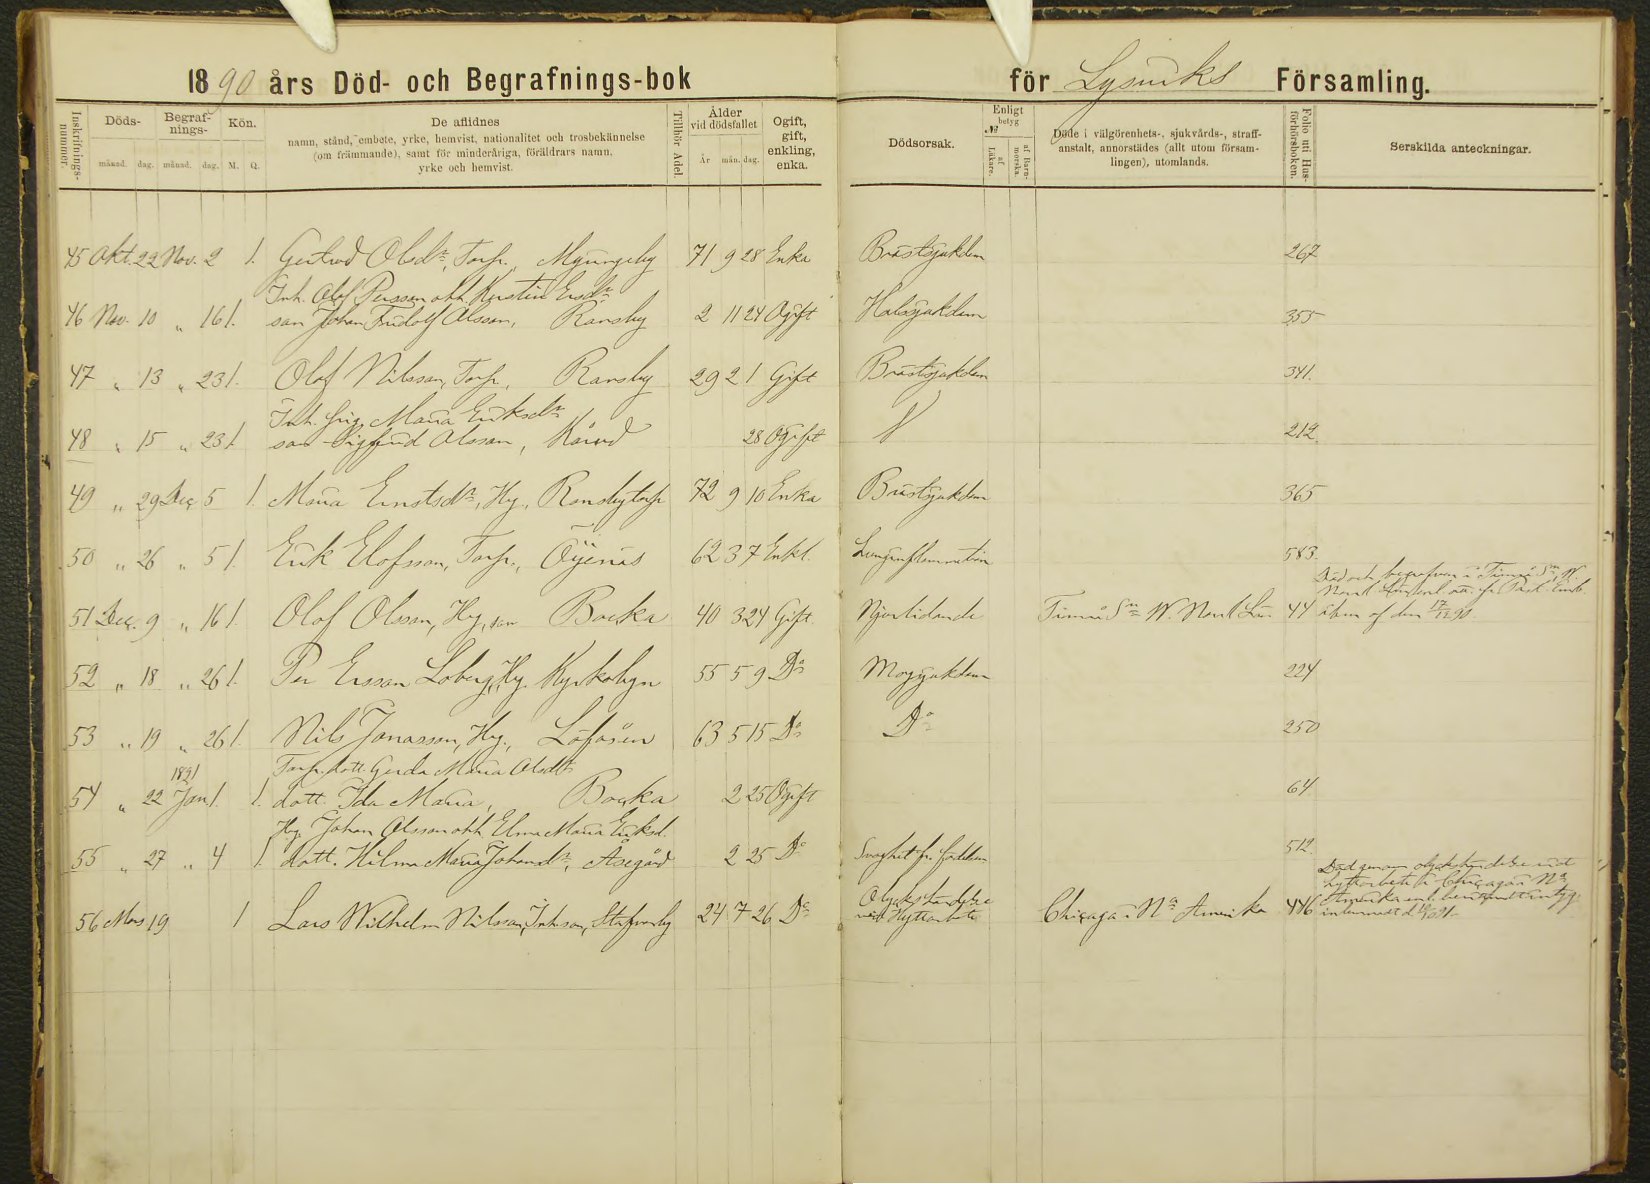 1890 års Död- och Begrafnings-bok för Lysviks Församling.
Inskrifnings-nummer. Döds- månad. dag. Begraf-nings- månad. dag. Kön. M. Q. De aflidnes namn, stånd, embete, yrke, hemvist, nationalitet och trosbekännelse (om främmande), samt för minderåriga, föräldrars namn, yrke och hemvist. Tillhör Adel. Ålder vid dödsfallet År mån. dag. Ogift, gift, enkling, enka. Dödsorsak. Enligt betyg № af Läkare. af Barn-morska. Döde i välgörenhets-, sjukvårds-, straff-anstalt, annorstädes (allt utom församlingen), utomlands. Folio uti Hus-förhörsboken. Serskilda anteckningar.
45 Okt. 22 Nov. 2 1. Gertrud Olsdr, Torp., 71 9 28 Enka Bröstsjukdom 267
Inh. Olof Persson och Kerstin Ersdr
46 Nov. 10 " 16 1. son Johan Fridolf Olsson, Ransby 2 11 24 Ogift Halssjukdom 355
47 " 13 " 23 1. Olof Nilsson, Torp., Ransby 29 2 1 Gift Bröstsjukdom 341.
Inh. Maria Eriksdr
48 " 15 " 23 1 son Sigfrid Olsson, 28 Ogift 212.
49 " 29 Dec. 5 1. Maria Ernstsdr, Hg., Ransbytorp 72 9 10 Enka Bröstsjukdom 365
50 " 26 " 5 1. Erik Elofsson, Torp., Öjenäs 62 3 7 Enkl. Lunginflammation 583.
Död och begrafven i
51 Dec. 9 " 16 1. Olof Olsson, Hg. son Bocka 40 3 24 Gift. Njurlidande 44 af den 17/12 90.
52 " 18 " 26 1. Per Ersson Loberg, Hg. Kyrkobyn 55 5 9 Do Magsjukdom 224
53 " 19 " 26 1. Nils Jonasson, Hg., Löfåsen 63 5 15 Do Do 250
1891 Torp. dott. Gerda Maria Olsdr
54 " 22 Jan 1. 1. dott. Ida Maria, Bocka 2 25 Ogift 64
Hg. Johan Olsson och Elma Maria Eriksd.
55 " 27 " 4 1. dott. Hilma Maria Johansdr, Åsegård 2 25 Do Svaghet fr. födelsen 512.
Död genom olyckshändelse vid
hyttarbete i Chicaga i Na
56 Mars 19 1 Lars Wilhelm Nilsson, Inhson, Stafvonby 24 7 26 Do Olyckshändelse vid Hyttarbete Chicaga i Na Amerika 446 Amerika enl.